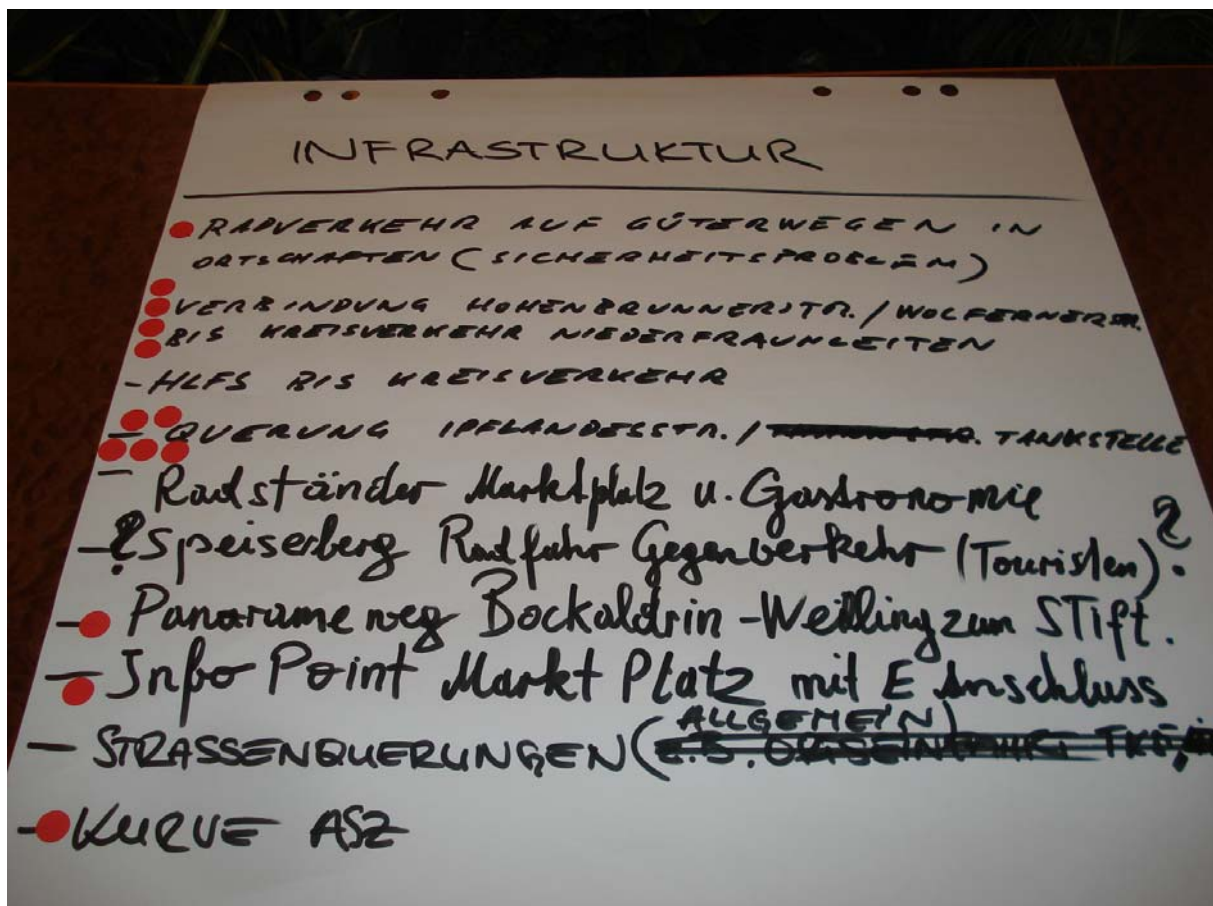 INFRASTRUKTUR
RADVERKEHR AUF GÜTERWEGEN IN
ORTSCHAFTEN (SICHERHEITSPROBLEM)
VERBINDUNG HOHENBRUNNERSTR. / WOLFERNERSTR.
BIS KREISVERKEHR NIEDERFRAUNLEITEN
- HLFS BIS KREISVERKEHR
- QUERUNG IPFLANDESSTR. / TANKSTELLE
- Radständer Marktplatz u. Gastronomie
- ? Speiserberg Radfahr Gegenverkehr (Touristen) ?
- Panorameweg Bockaldrin - Weilling zum STift.
- Info Point Markt Platz mit E Anschluss
- STRASSENQUERUNGEN (ALLGEMEIN)
- KURVE ASZ